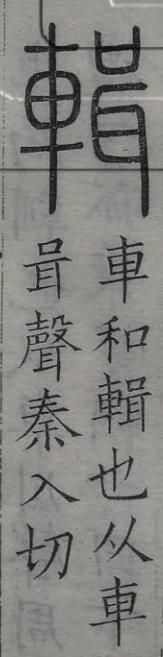 輯
車和輯也从車
咠聲秦入切